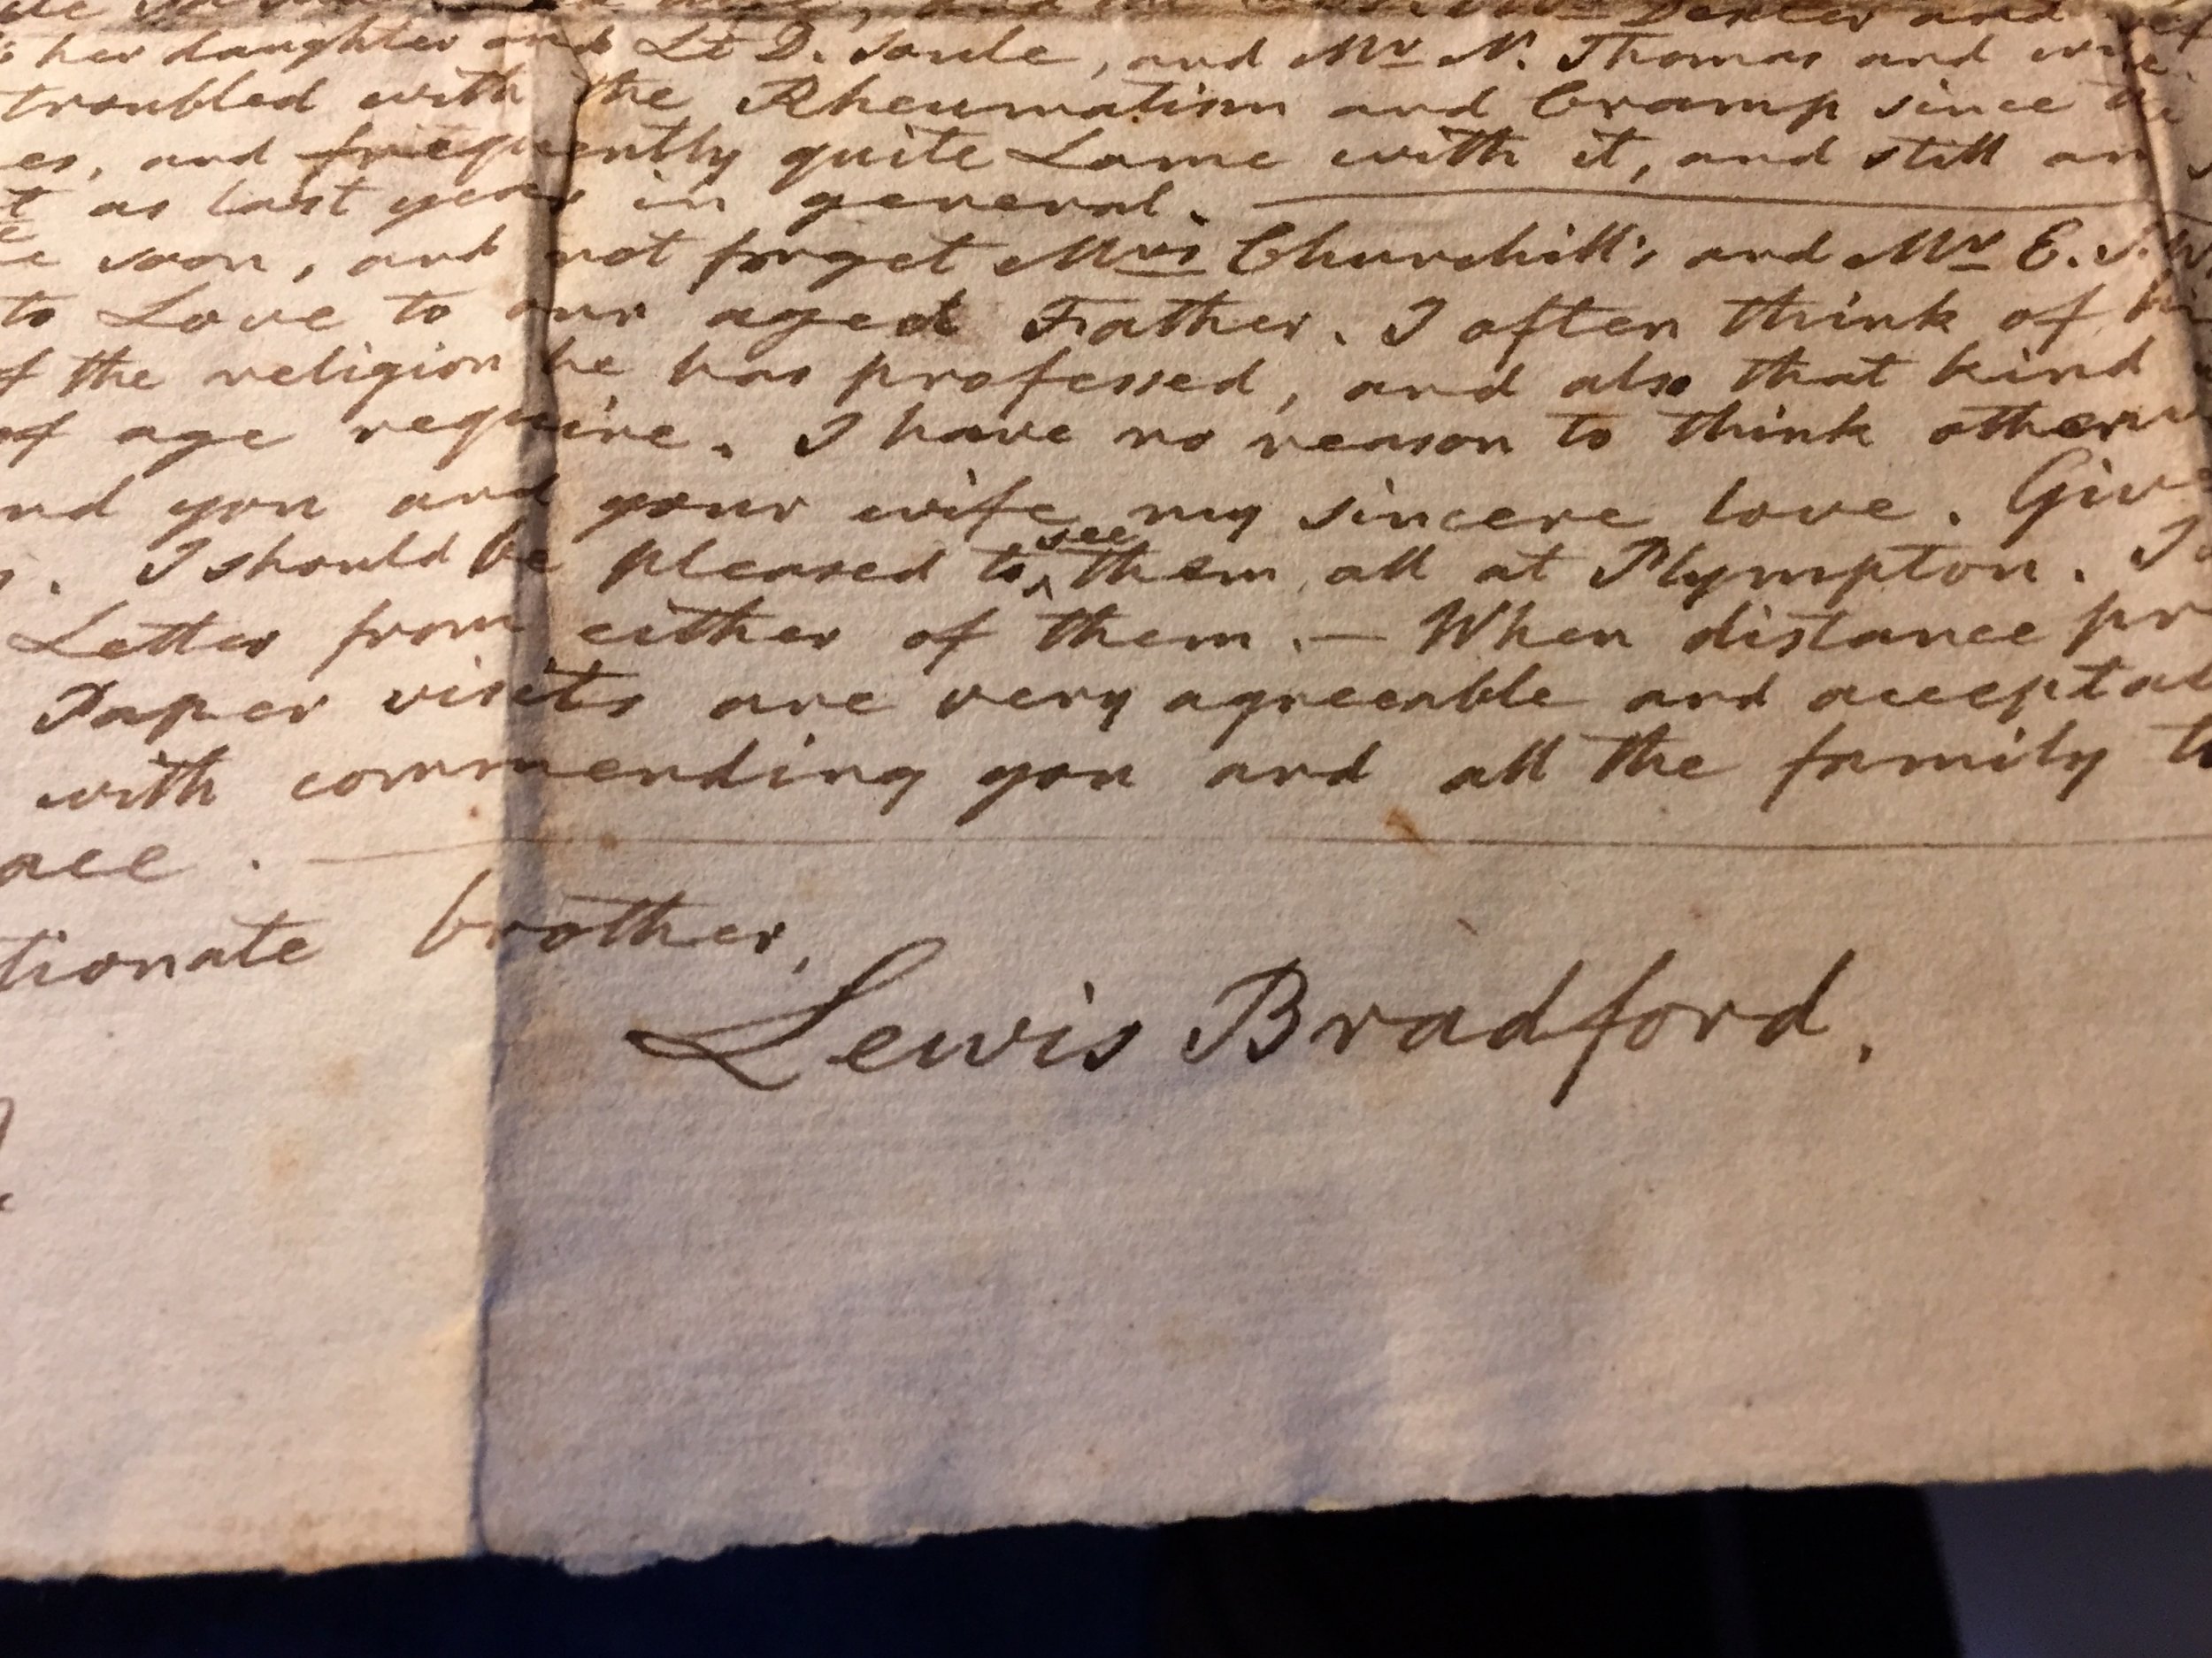 Dexter and
her daughter and Lt D. Soule, and Mr N. Thomas and wife.
troubled with the Rheumatism and Cramp since
es, and frequently quite Lame with it, and still am
as last year in general.
soon, and not forget Mrs Churchill's, and Mr E. S.
to Love to our aged Father. I often think of
f the religion he has professed, and also that kind
of age require. I have no reason to think otherw
nd you and your wife my sincere love. Giv
I should be pleased to see them all at Plympton. I
Letter from either of them. — When distance pr
Paper visits are very agreeable and acceptab
with commending you and all the family t
ace.
tionate brother,
Lewis Bradford.